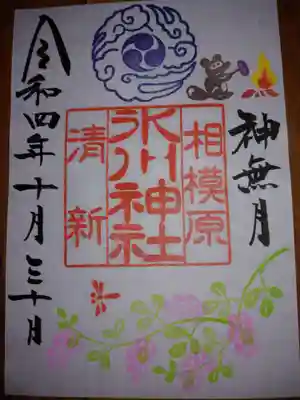 神無月
相模原
氷川神社
清新
令和四年十月三十日